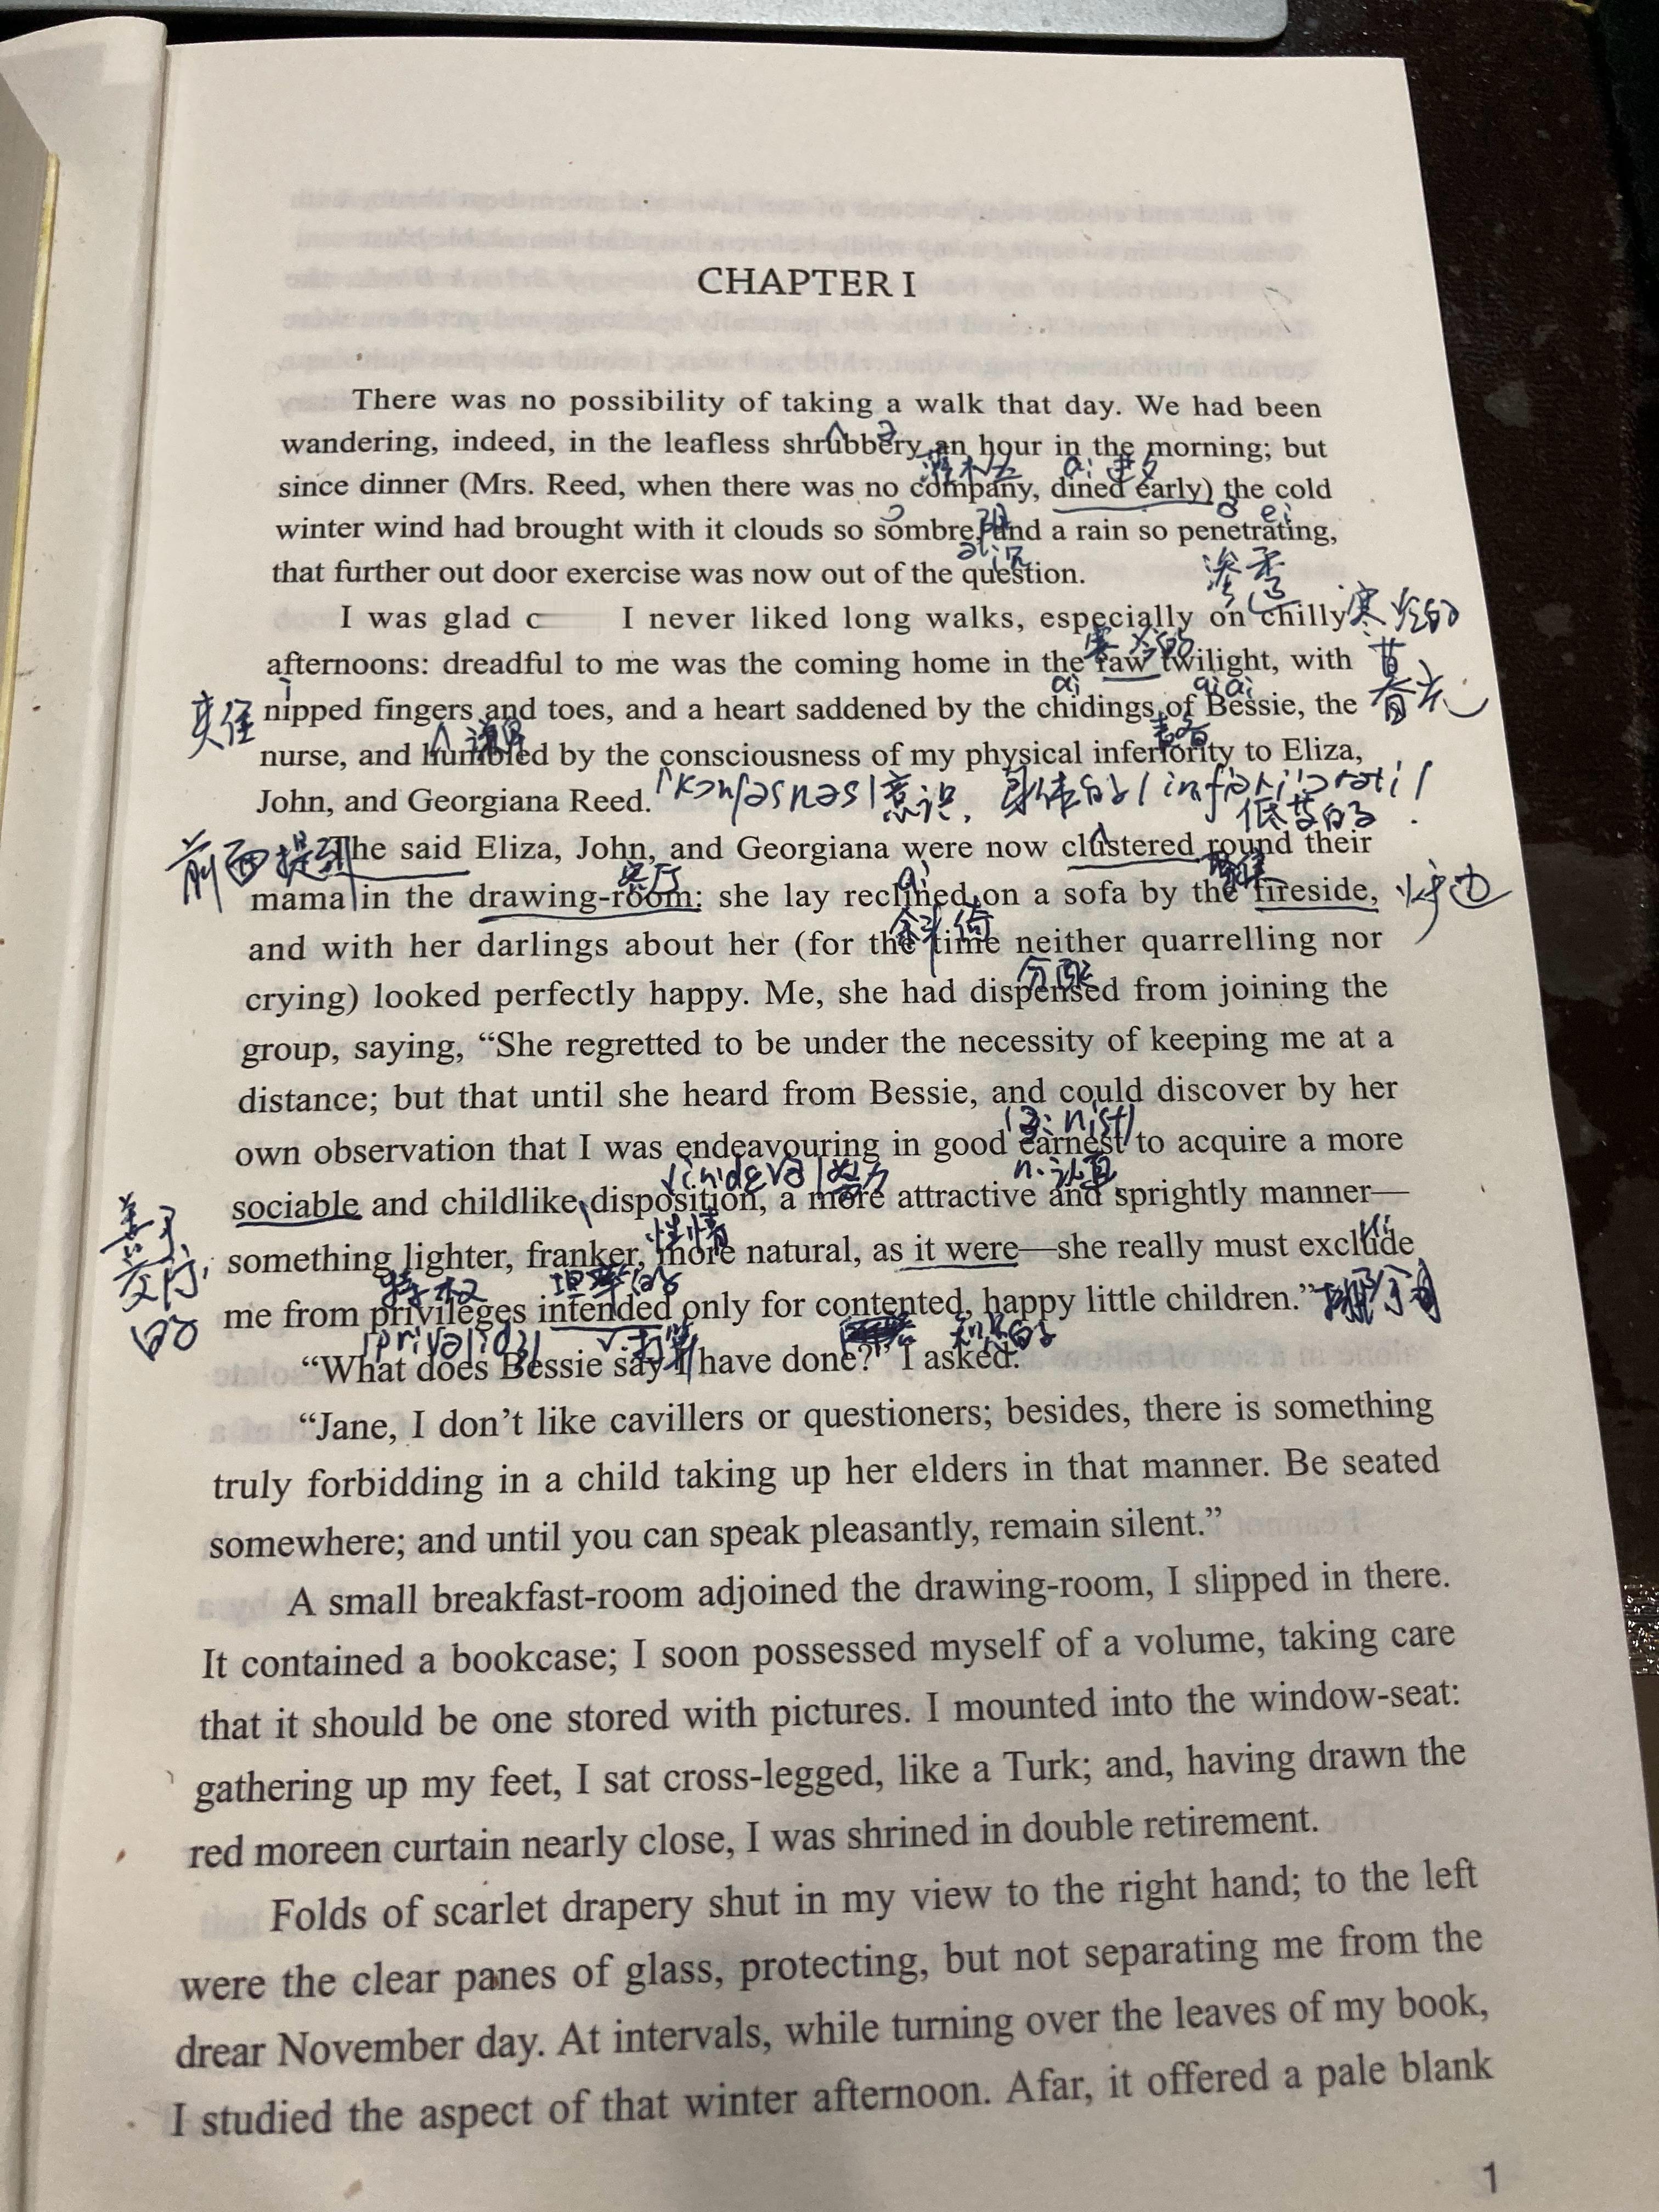 CHAPTER I
There was no possibility of taking a walk that day. We had been
wandering, indeed, in the leafless shrubbery an hour in the morning; but
灌木丛
since dinner (Mrs. Reed, when there was no company, dined early) the cold
winter wind had brought with it clouds so sombre, and a rain so penetrating,
that further out door exercise was now out of the question.
I was glad I never liked long walks, especially on chilly
寒冷的
afternoons: dreadful to me was the coming home in the raw twilight, with
nipped fingers and toes, and a heart saddened by the chidings of Bessie, the
夹住
nurse, and humbled by the consciousness of my physical inferiority to Eliza,
John, and Georgiana Reed.
意识, 身体的
前面提到
The said Eliza, John, and Georgiana were now clustered round their
客厅
mama in the drawing-room: she lay reclined on a sofa by the fireside,
炉边
and with her darlings about her (for the time neither quarrelling nor
分配
crying) looked perfectly happy. Me, she had dispensed from joining the
group, saying, “She regretted to be under the necessity of keeping me at a
distance; but that until she heard from Bessie, and could discover by her
own observation that I was endeavouring in good earnest to acquire a more
sociable and childlike disposition, a more attractive and sprightly manner—
善于
交际
的
性情
something lighter, franker, more natural, as it were—she really must exclude
坦率的
me from privileges intended only for contented, happy little children.”
“What does Bessie say I have done?” I asked.
“Jane, I don’t like cavillers or questioners; besides, there is something
truly forbidding in a child taking up her elders in that manner. Be seated
somewhere; and until you can speak pleasantly, remain silent.”
A small breakfast-room adjoined the drawing-room, I slipped in there.
It contained a bookcase; I soon possessed myself of a volume, taking care
that it should be one stored with pictures. I mounted into the window-seat:
gathering up my feet, I sat cross-legged, like a Turk; and, having drawn the
red moreen curtain nearly close, I was shrined in double retirement.
Folds of scarlet drapery shut in my view to the right hand; to the left
were the clear panes of glass, protecting, but not separating me from the
drear November day. At intervals, while turning over the leaves of my book,
I studied the aspect of that winter afternoon. Afar, it offered a pale blank
1